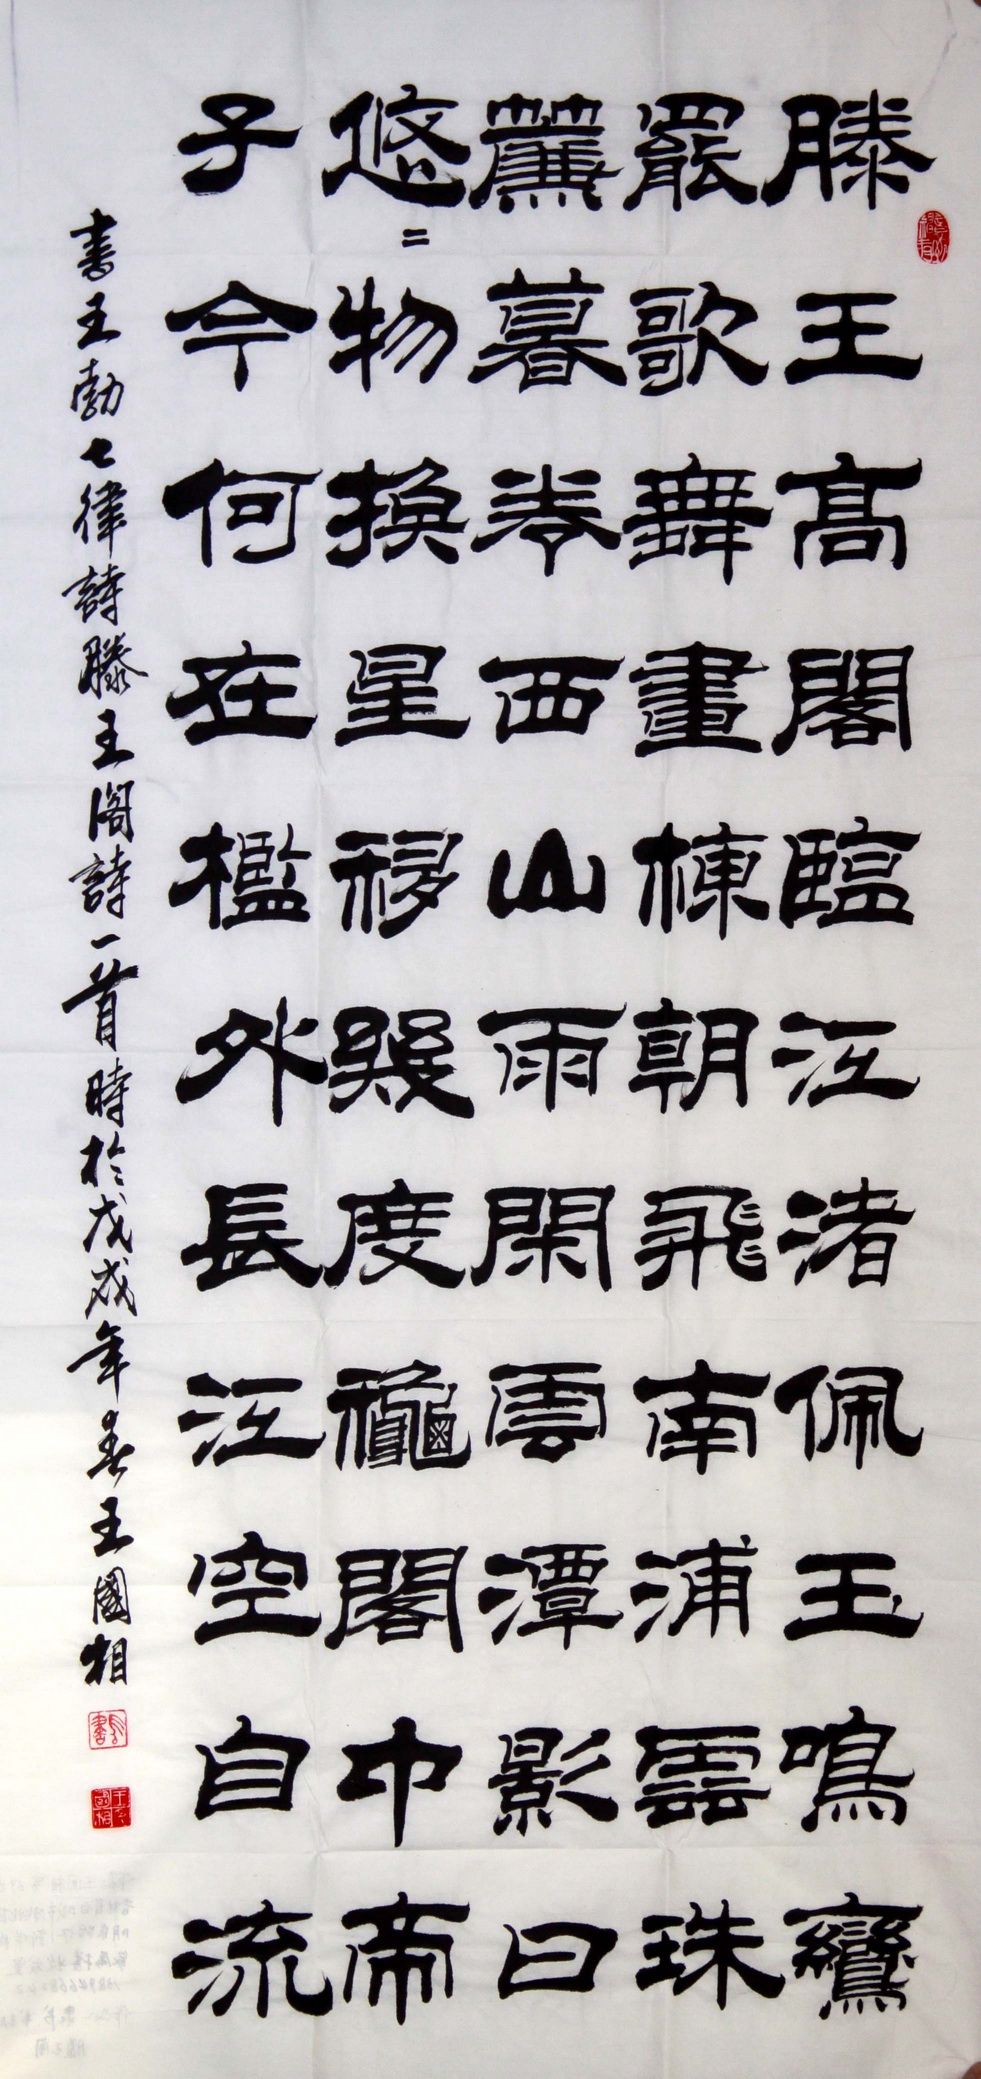 滕王高閣臨江渚佩玉鳴鸞
罷歌舞畫棟朝飛南浦雲珠
簾暮卷西山雨閑雲潭影日
悠〻物換星移幾度秋閣中帝
子今何在檻外長江空自流
書王勃七律詩滕王閣詩一首時於戊戌年春王國相